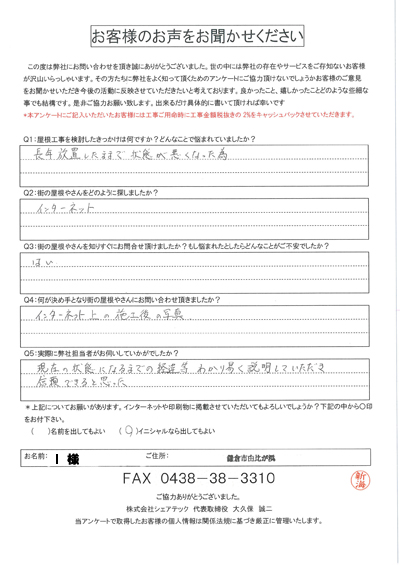 お客様のお声をお聞かせください
この度は弊社にお問い合わせを頂き誠にありがとうございました。世の中には弊社の存在やサービスをご存知ないお客様
が沢山いらっしゃいます。その方たちに弊社をよく知って頂くためのアンケートにご協力頂けないでしょうかお客様のご意見
をお聞かせいただき今後の活動に反映させていただきたいと考えております。良かったこと、嬉しかったことどのような些細な
事でも結構です。是非ご協力お願い致します。出来るだけ具体的に書いて頂ければ幸いです
*本アンケートにご記入いただいたお客様には工事ご用命時に工事金額税抜きの 2%をキャッシュバックさせていただきます。
Q1:屋根工事を検討したきっかけは何ですか?どんなことで悩まれていましたか?
長年放置したままで状態が悪くなった為
Q2:街の屋根やさんをどのように探しましたか?
インターネット
Q3:街の屋根やさんを知りすぐにお問合せ頂けましたか?もし悩まれたとしたらどんなことがご不安でしたか?
はい
Q4:何が決め手となり街の屋根やさんにお問い合わせ頂きましたか?
インターネット上の施工後の写真
Q5:実際に弊社担当者がお伺いしていかがでしたか?
現在の状態になるまでの経過等 わかり易く説明していただき
信頼できると思った
*上記についてお願いがあります。インターネットや印刷物に掲載させていただいてもよろしいでしょうか?下記の中から〇印
をお付下さい。
(　)名前を出してもよい (〇)イニシャルなら出してもよい
お名前: I 様 ご住所: 鎌倉市由比が浜
FAX 0438-38-3310
新海
ご協力ありがとうございました。
株式会社シェアテック 代表取締役 大久保 誠二
当アンケートで取得したお客様の個人情報は関係法規に基づき厳正に管理いたします。